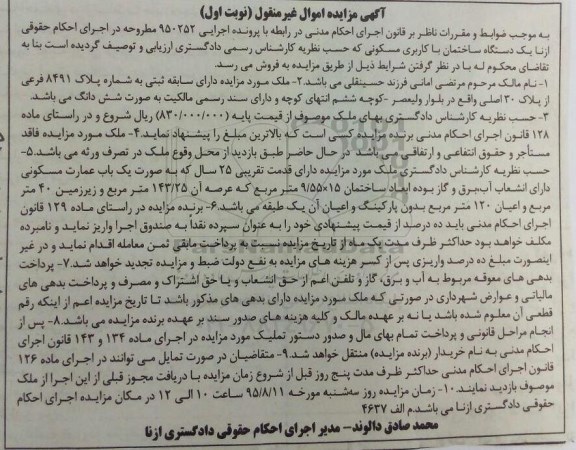 آگهی مزایده اموال غیرمنقول (نوبت اول)
به موجب ضوابط و مقررات ناظر بر قانون اجرای احکام مدنی در رابطه با پرونده اجرایی ۹۵۰۲۵۲ مطروحه در اجرای احکام حقوقی
ازنا یک دستگاه ساختمان با کاربری مسکونی که حسب نظریه کارشناس رسمی دادگستری ارزیابی و توصیف گردیده است بنا به
تقاضای محکوم له با در نظر گرفتن شرایط ذیل از طریق مزایده به فروش می رسد.
۱- نام مالک مرحوم مرتضی امانی فرزند حسینقلی می باشد.۲- ملک مورد مزایده دارای سابقه ثبتی به شماره پلاک ۸۴۹۱ فرعی
از پلاک ۳۰ اصلی واقع در بلوار ولیعصر -کوچه ششم انتهای کوچه و دارای سند رسمی مالکیت به صورت شش دانگ می باشد.
۳- حسب نظریه کارشناس دادگستری بهای ملک موصوف از قیمت پایه (۸۳۰/۰۰۰/۰۰۰) ریال شروع و در راستای ماده
۱۲۸ قانون اجرای احکام مدنی برنده مزایده کسی است که بالاترین مبلغ را پیشنهاد نماید.۴- ملک مورد مزایده فاقد
مستأجر و حقوق انتفاعی و ارتفاقی می باشد در حال حاضر طبق بازدید از محل وقوع ملک در تصرف ورثه می باشد.۵-
حسب نظریه کارشناس دادگستری ملک مورد مزایده دارای قدمت تقریبی ۲۵ سال که به صورت یک باب عمارت مسکونی
دارای انشعاب آب،برق و گاز بوده ابعاد ساختمان ۱۵×۹/۵۵ متر مربع که عرصه آن ۱۴۳/۲۵ متر مربع و زیرزمین ۴۰ متر
مربع و اعیان ۱۲۰ متر مربع بدون پارکینگ و اعیان آن یک طبقه می باشد.۶- برنده مزایده در راستای ماده ۱۲۹ قانون
اجرای احکام مدنی باید ده درصد از قیمت پیشنهادی خود را به عنوان سپرده نقداً به صندوق اجرا واریز نماید و نامبرده
مکلف خواهد بود حداکثر ظرف مدت یک ماه از تاریخ مزایده نسبت به پرداخت مابقی ثمن معامله اقدام نماید و در غیر
اینصورت مبلغ ده درصد واریزی پس از کسر هزینه های مزایده به نفع دولت ضبط و مزایده تجدید خواهد شد.۷- پرداخت
بدهی های معوقه مربوط به آب و برق، گاز و تلفن اعم از حق انشعاب و یا حق اشتراک و مصرف و پرداخت بدهی های
مالیاتی و عوارض شهرداری در صورتی که ملک مورد مزایده دارای بدهی های مذکور باشد تا تاریخ مزایده اعم از اینکه رقم
قطعی آن معلوم شده باشد یا نه بر عهده مالک و کلیه هزینه های صدور سند بر عهده برنده مزایده می باشد.۸- پس از
انجام مراحل قانونی و پرداخت تمام بهای مال و صدور دستور تملیک مورد مزایده در اجرای ماده ۱۳۴ و ۱۴۳ قانون اجرای
احکام مدنی به نام خریدار (برنده مزایده) منتقل خواهد شد.۹- متقاضیان در صورت تمایل می توانند در اجرای ماده ۱۲۶
قانون اجرای احکام مدنی حداکثر ظرف مدت پنج روز قبل از شروع زمان مزایده با دریافت مجوز قبلی از این اجرا از ملک
موصوف بازدید نمایند.۱۰- زمان مزایده روز سه‌شنبه مورخه ۹۵/۸/۱۱ ساعت ۱۰ الی ۱۲ در مکان مزایده اجرای احکام
حقوقی دادگستری ازنا می باشد.م الف ۴۶۳۷
محمد صادق دالوند- مدیر اجرای احکام حقوقی دادگستری ازنا